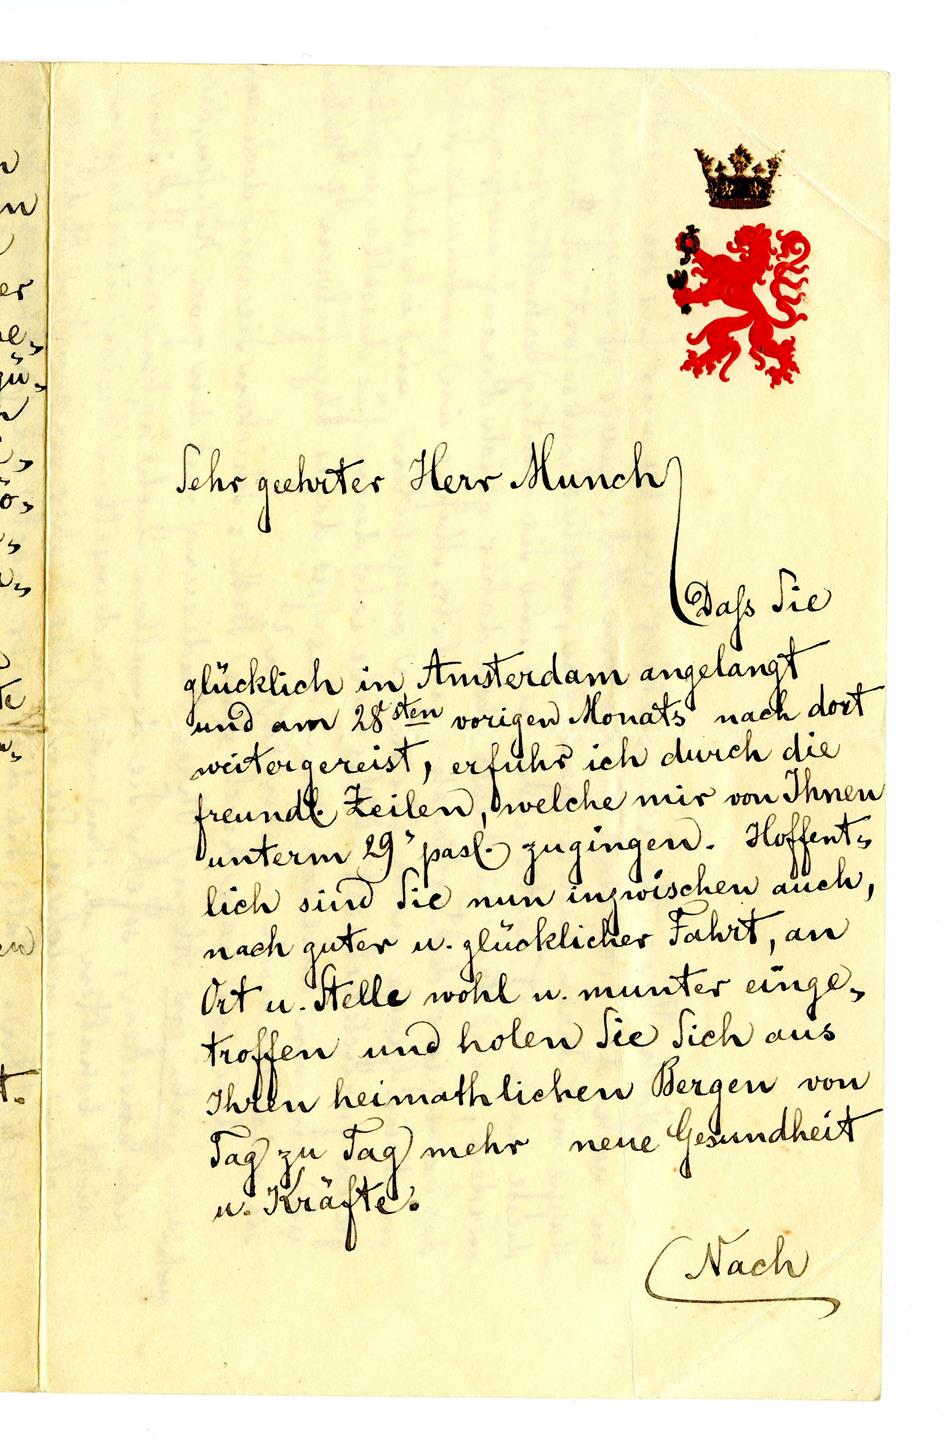 Sehr geehrter Herr Munch
Dass Sie
glücklich in Amsterdam angelangt
und am 28sten vorigen Monats nach dort
weitergereist, erfuhr ich durch die
freundl. Zeilen, welche mir von Ihnen
unterm 29' pass. zugingen. Hoffent-
lich sind Sie nun inzwischen auch,
nach guter u. glücklicher Fahrt, an
Ort u. Stelle wohl u. munter einge-
troffen und holen Sie Sich aus
Ihren heimathlichen Bergen von
Tag zu Tag mehr neue Gesundheit
u. Kräfte.
Nach